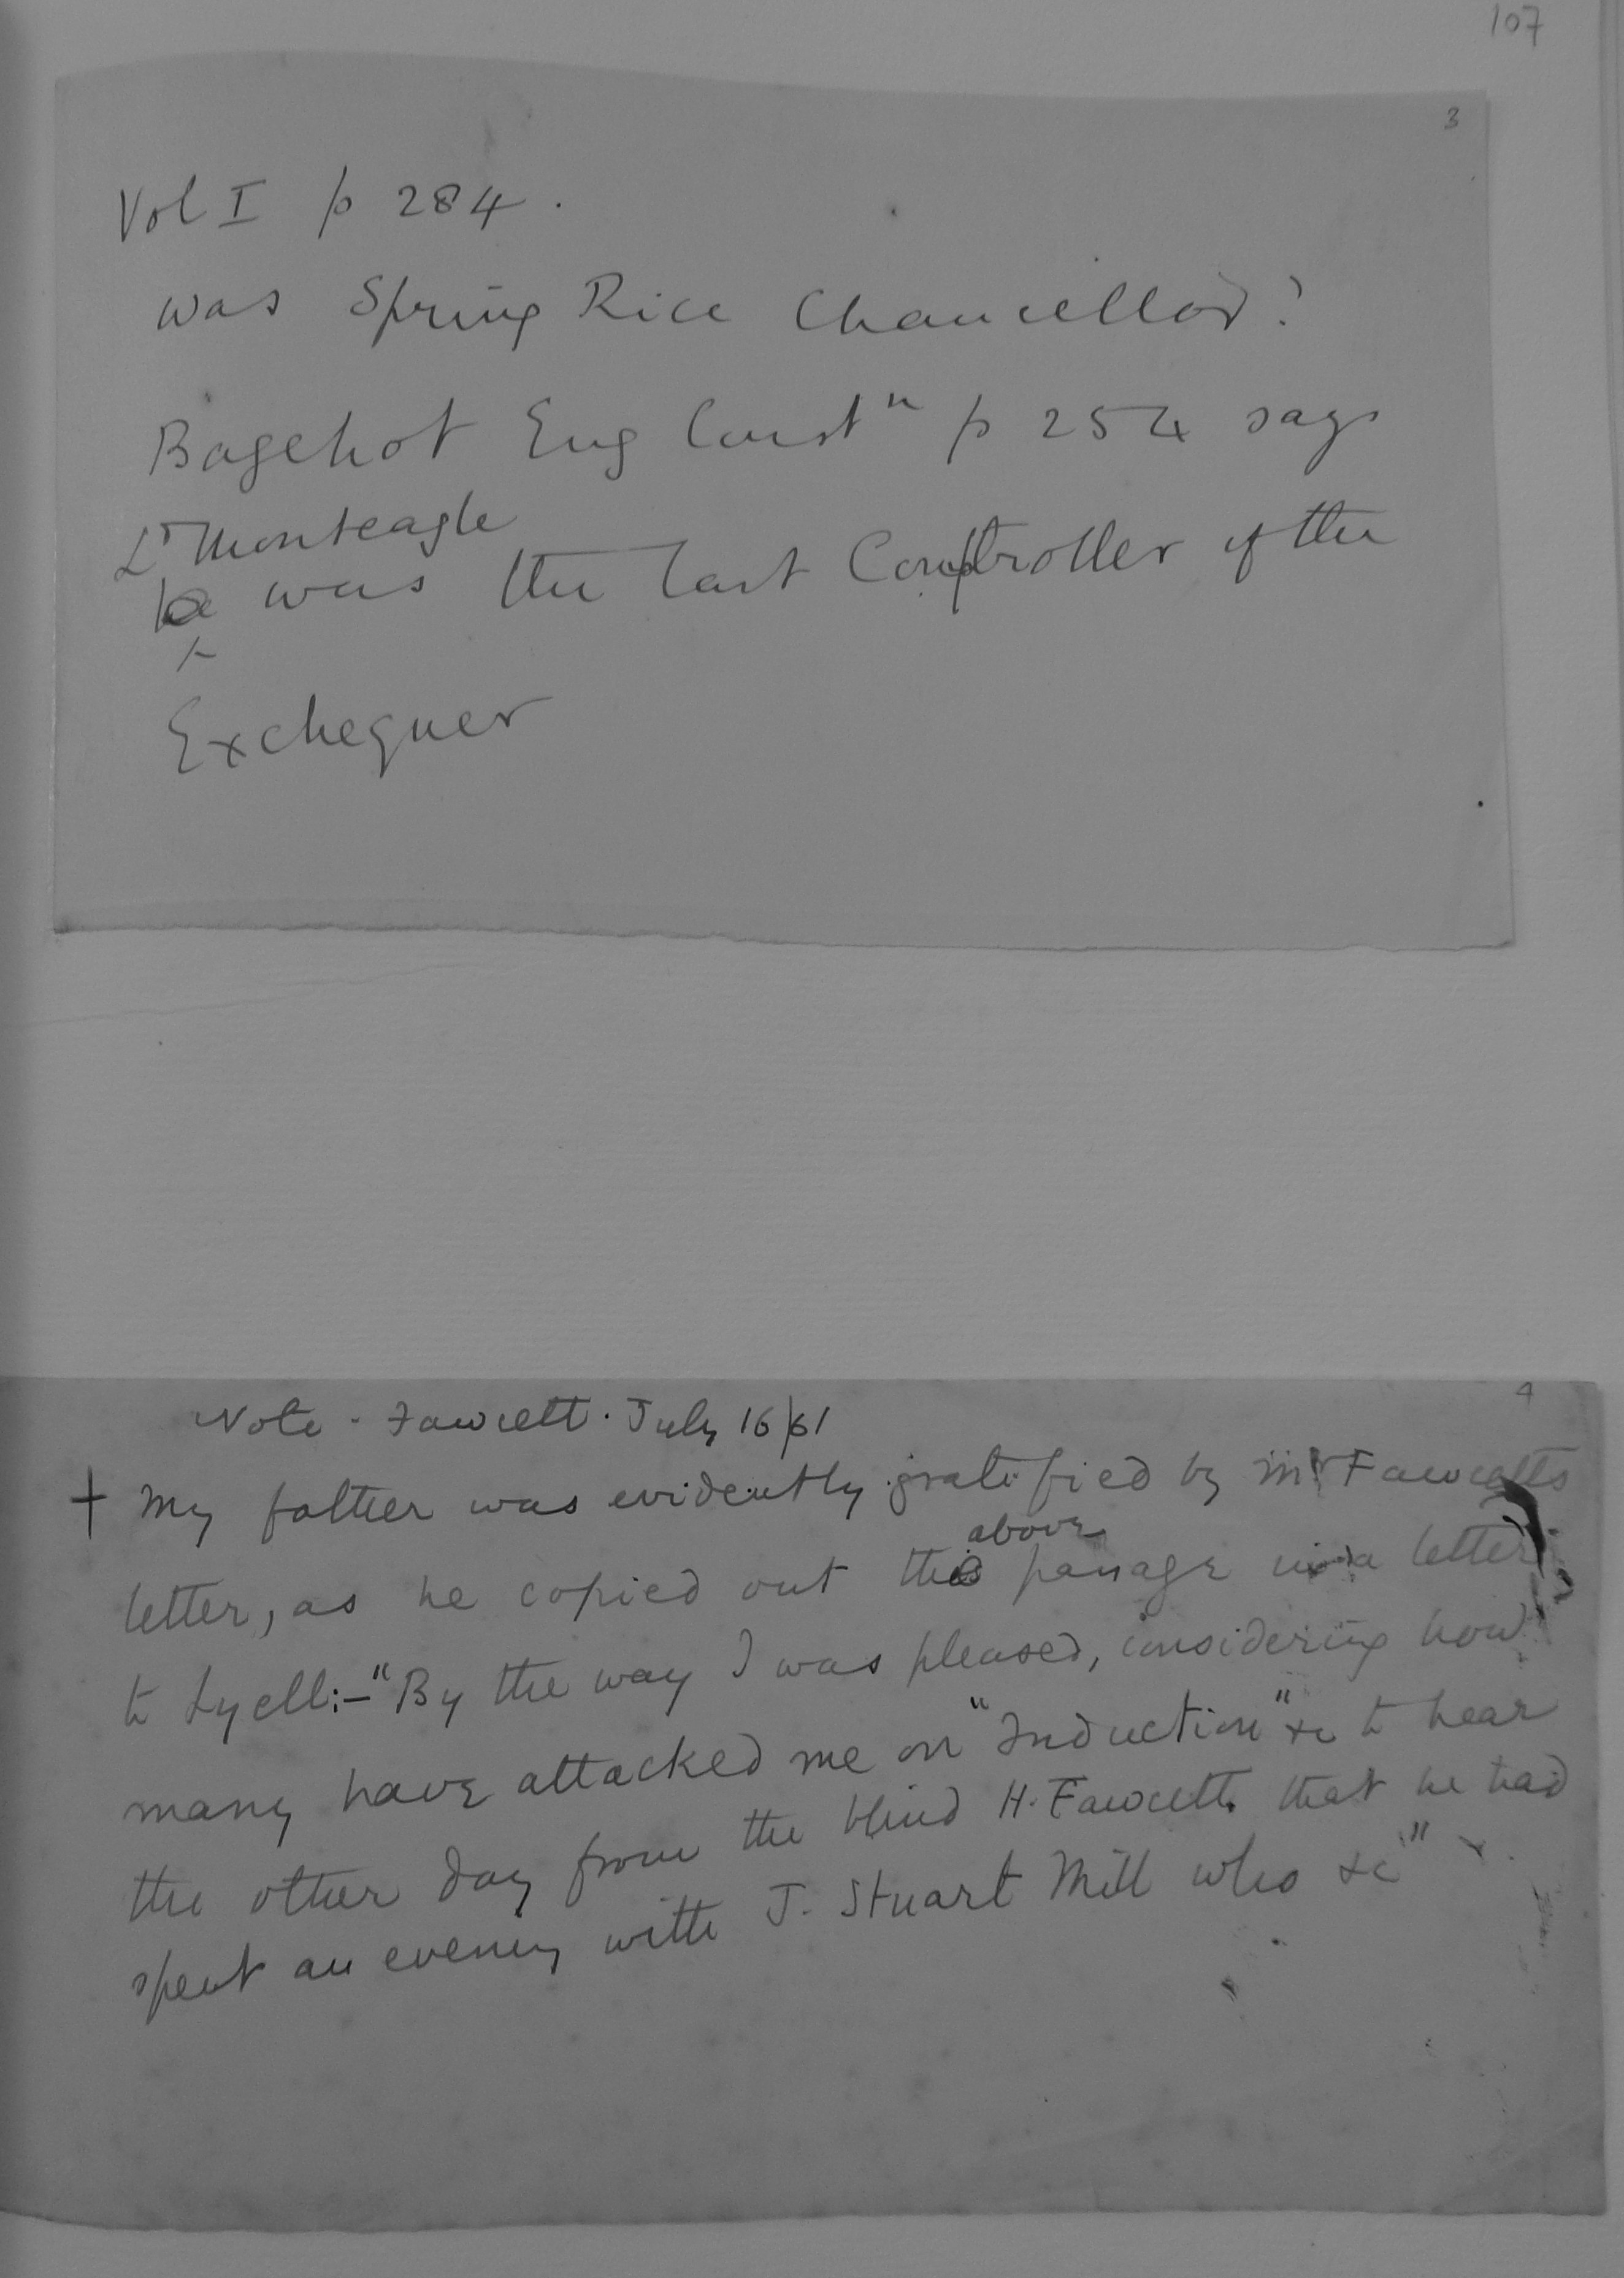 107
3
Vol I p 284.
was Spring Rice Chancellor?
Bagehot Eng Constⁿ p 254 says
Lᵈ Monteagle
he was the last Comptroller of the
Exchequer
4
Note - Fawcett. July 16/61
+ My father was evidently gratified by Mʳ Fawcetts
above
letter, as he copied out the passage in a letter
to Lyell:—"By the way I was pleased, considering how
many have attacked me on "Induction" &c to hear
the other day from the blind H. Fawcett. that he had
spent an evening with J. Stuart Mill who &c"